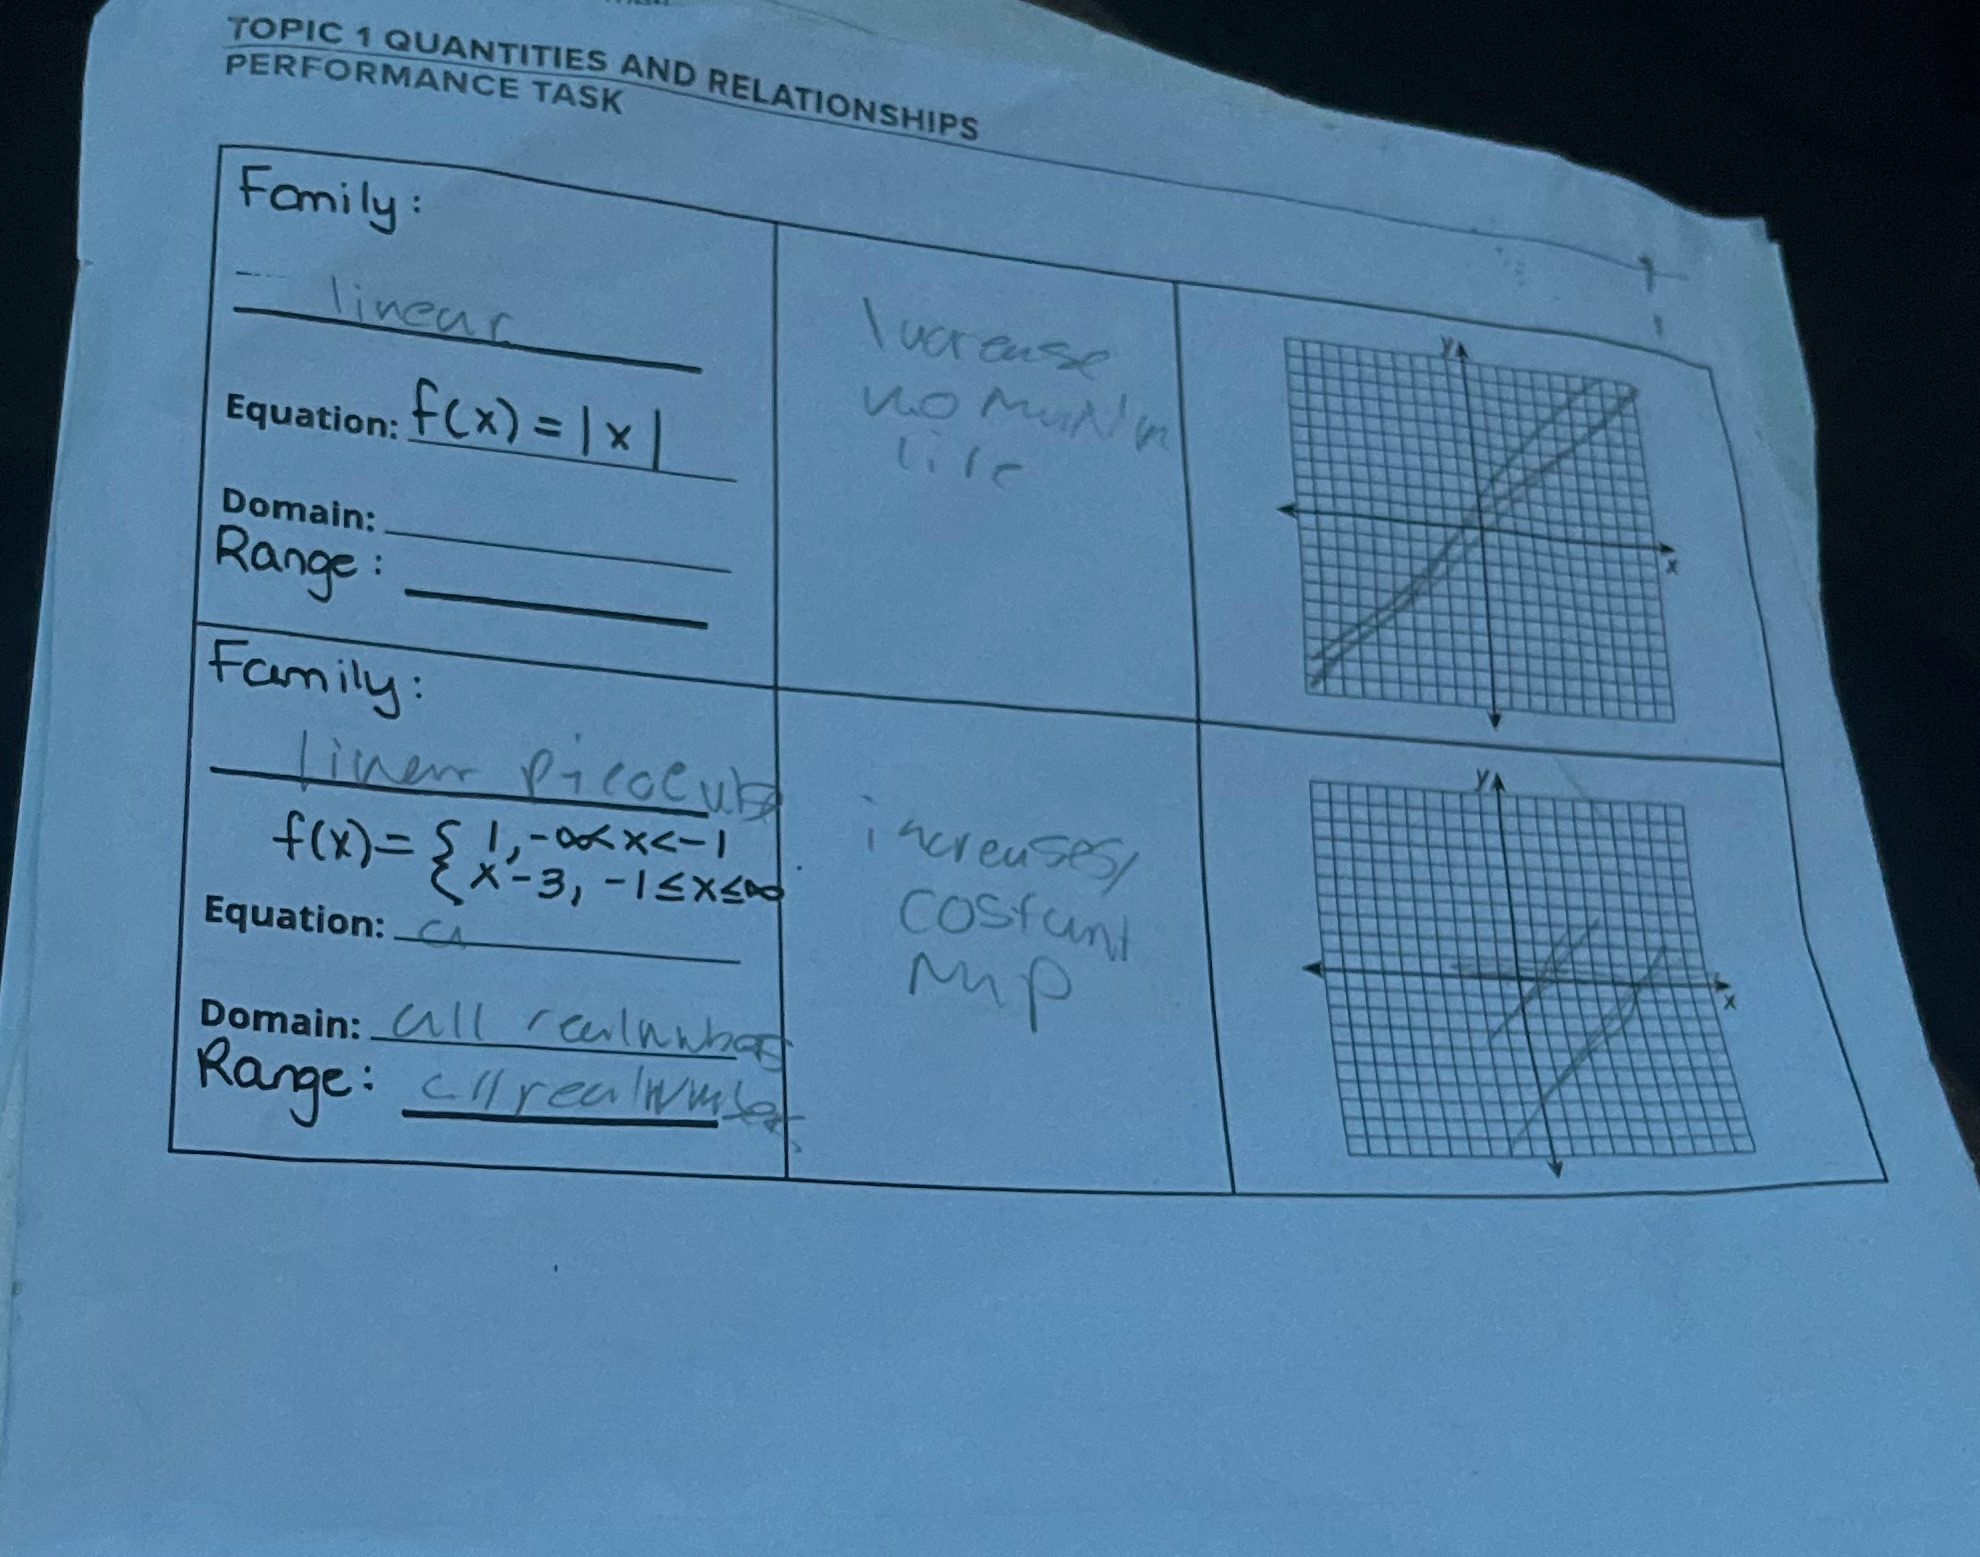 TOPIC 1 QUANTITIES AND RELATIONSHIPS
PERFORMANCE TASK
Family:
linear
Equation: f(x) = |x|
Domain:
Range:
Increase
no
y
x
Family:
linear
f(x) = { 1, -∞ < x < -1
x - 3, -1 ≤ x ≤ ∞
Equation:
Domain: all real
Range: all real
increases,
costant
y
x